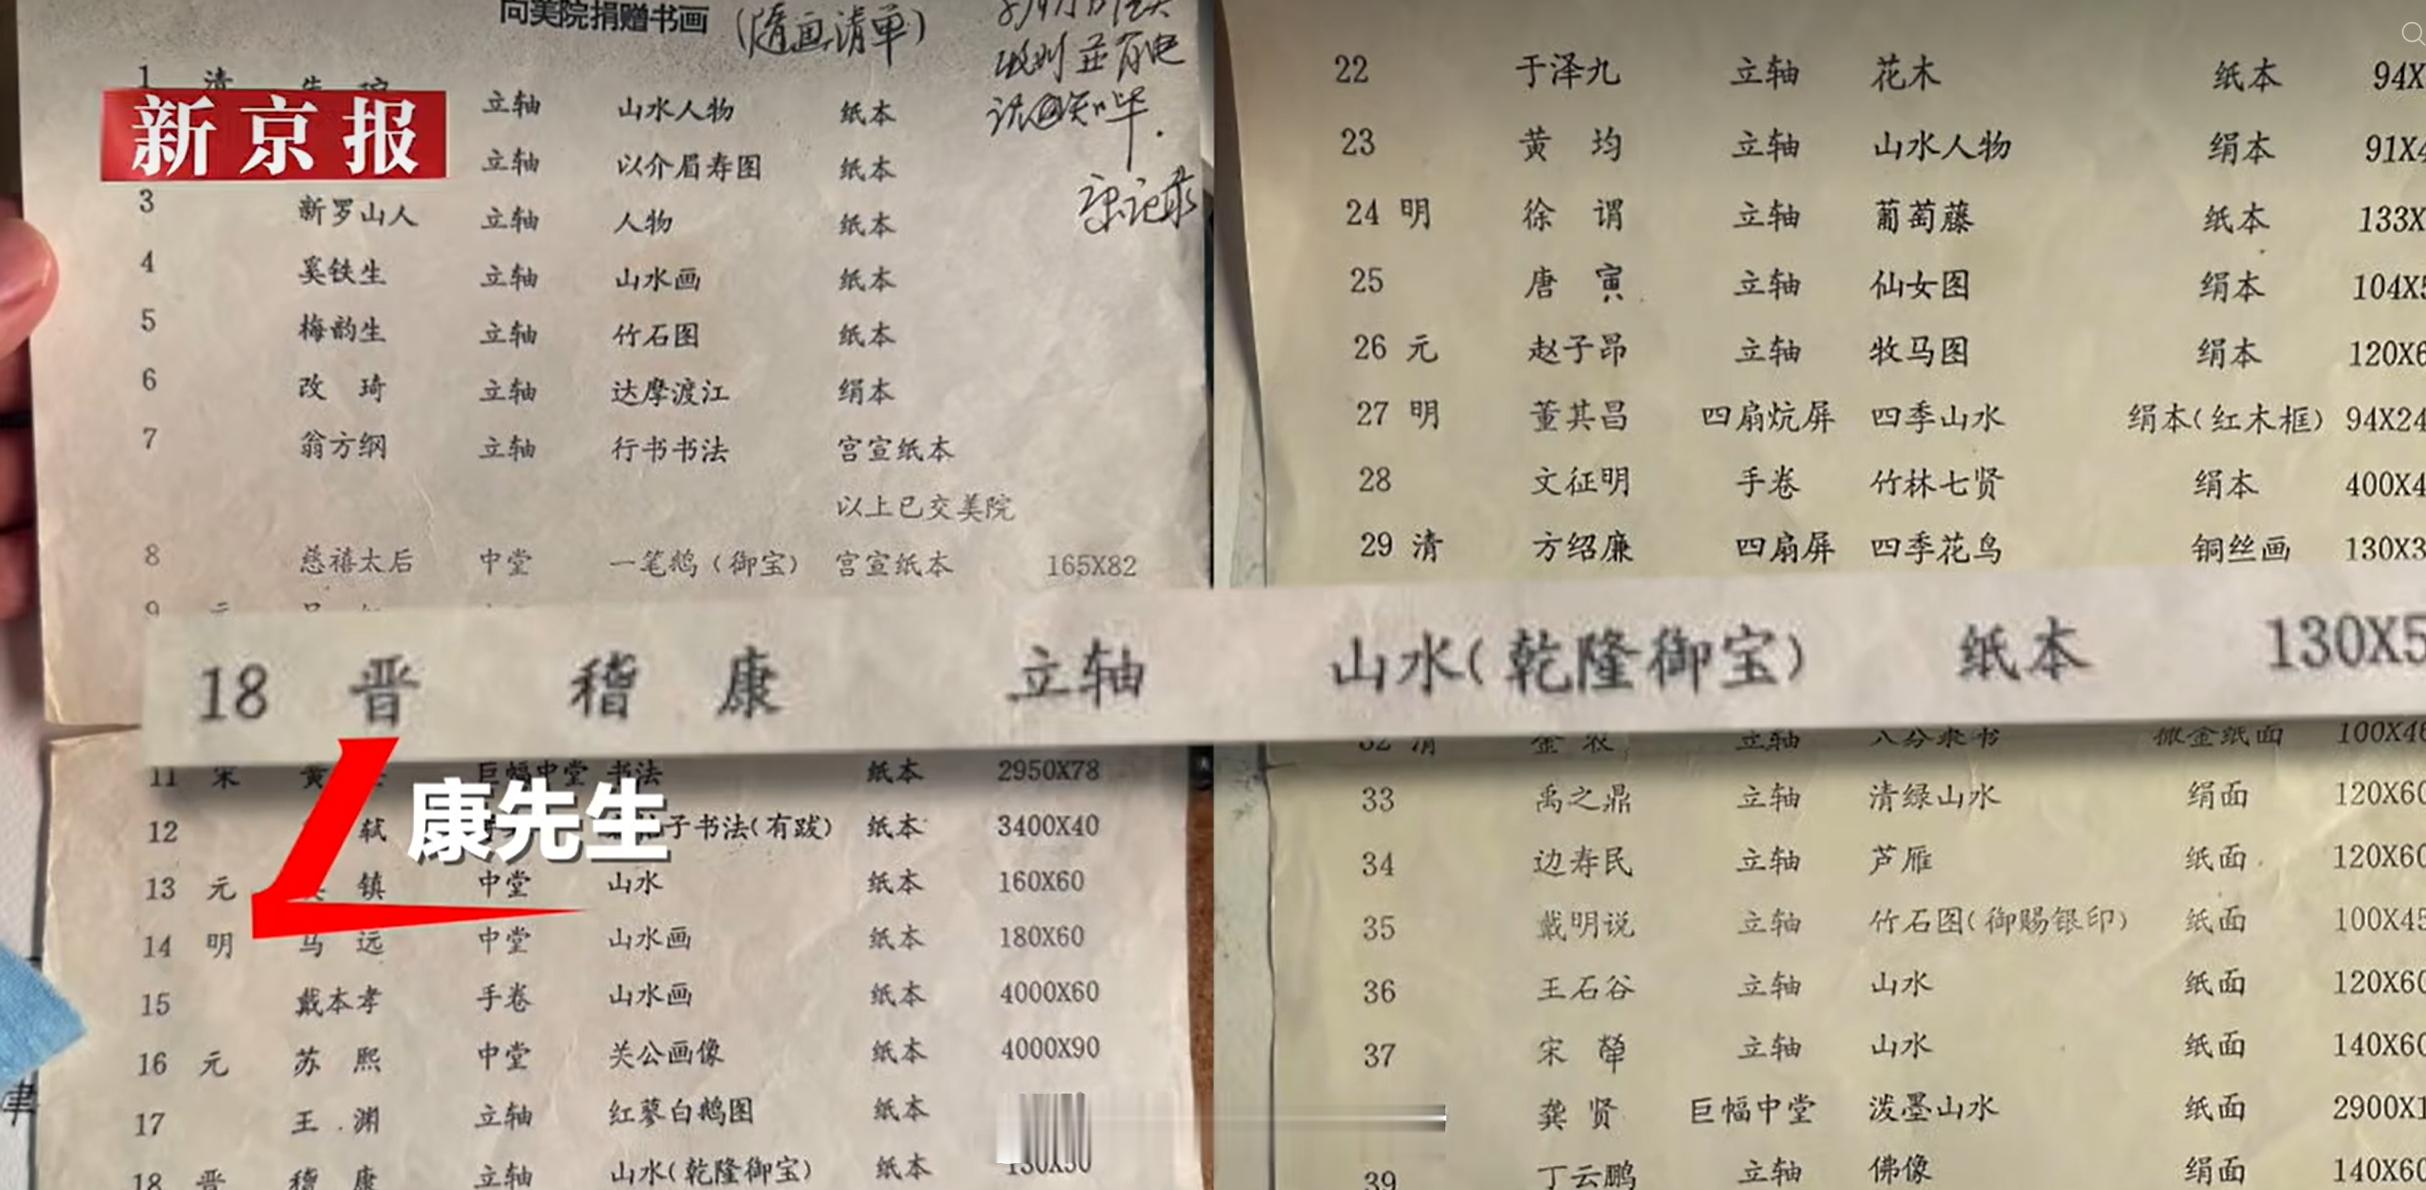 向美院捐赠书画（随画清单）
1 清 朱
新京报
立轴 山水人物 纸本
立轴 以介眉寿图 纸本
3 新罗山人 立轴 人物 纸本
4 奚铁生 立轴 山水画 纸本
5 梅韵生 立轴 竹石图 纸本
6 改 琦 立轴 达摩渡江 绢本
7 翁方纲 立轴 行书书法 宫宣纸本
以上已交美院
8 慈禧太后 中堂 一笔鹅（御宝） 宫宣纸本 165X82
9 元
18 晋 稽 康 立轴 山水（乾隆御宝） 纸本 130X5
11 宋 黄 巨幅中堂 书法 纸本 2950X78
康先生
12 轼 子书法（有跋） 纸本 3400X40
13 元 镇 中堂 山水 纸本 160X60
14 明 马 远 中堂 山水画 纸本 180X60
15 戴本孝 手卷 山水画 纸本 4000X60
16 元 苏 熙 中堂 关公画像 纸本 4000X90
17 王 渊 立轴 红蓼白鹅图 纸本
18 晋 稽 康 立轴 山水（乾隆御宝） 纸本 130X50
22 于泽九 立轴 花木 纸本 94X
23 黄 均 立轴 山水人物 绢本 91X4
24 明 徐 谓 立轴 葡萄藤 纸本 133X
25 唐 寅 立轴 仙女图 绢本 104X5
26 元 赵子昂 立轴 牧马图 绢本 120X6
27 明 董其昌 四扇炕屏 四季山水 绢本（红木框） 94X24
28 文征明 手卷 竹林七贤 绢本 400X4
29 清 方绍廉 四扇屏 四季花鸟 铜丝画 130X3
32 清 金 农 立轴 八分隶书 撒金纸面 100X46
33 禹之鼎 立轴 清绿山水 绢面 120X60
34 边寿民 立轴 芦雁 纸面 120X60
35 戴明说 立轴 竹石图（御赐银印） 纸面 100X45
36 王石谷 立轴 山水 纸面 120X60
37 宋 荦 立轴 山水 纸面 140X60
龚 贤 巨幅中堂 泼墨山水 纸面 2900X1
39 丁云鹏 立轴 佛像 绢面 140X60